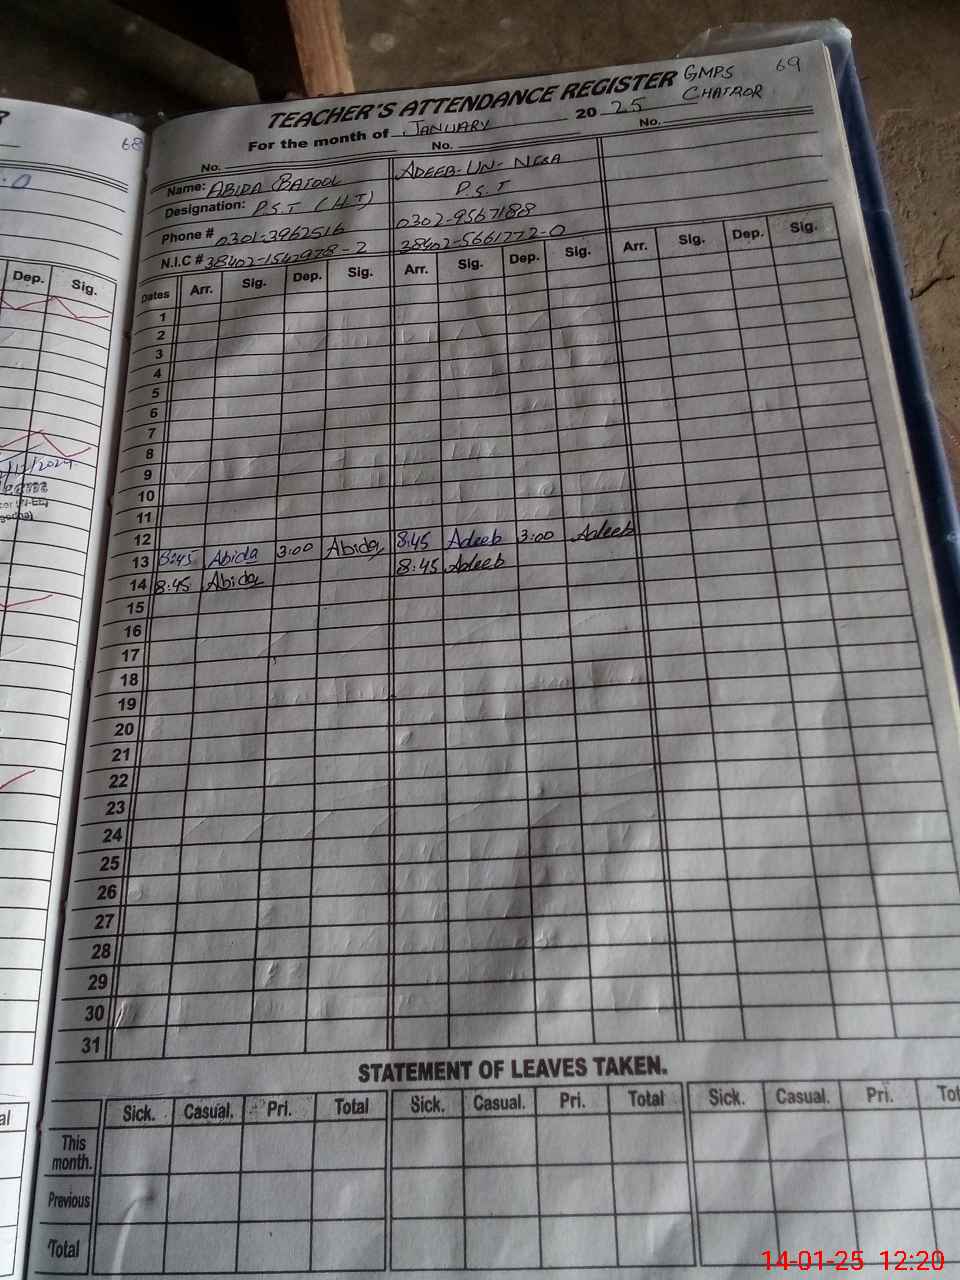 68
69
TEACHER'S ATTENDANCE REGISTER GMPS
CHATROR
For the month of JANUARY 20 25
No. No. No.
Name: ABIDA BATOOL ADEEB-UN-NISA
Designation: P.S.T (H.T) P.S.T
Phone # 0301-3962516 0302-9567188
N.I.C # 38402-1542978-2 38402-5661772-0
Dep. Sig.
Dates Arr. Sig. Dep. Sig. Arr. Sig. Dep. Sig. Arr. Sig. Dep. Sig.
1
2
3
4
5
6
7
8
9
10
11
12
13 8:45 Abida 3:00 Abida 8:45 Adeeb 3:00 Adeeb
14 8:45 Abida 8:45 Adeeb
15
16
17
18
19
20
21
22
23
24
25
26
27
28
29
30
31
STATEMENT OF LEAVES TAKEN.
Sick. Casual. Pri. Total Sick. Casual. Pri. Total Sick. Casual. Pri.
This month.
Previous
Total
14-01-25 12:20